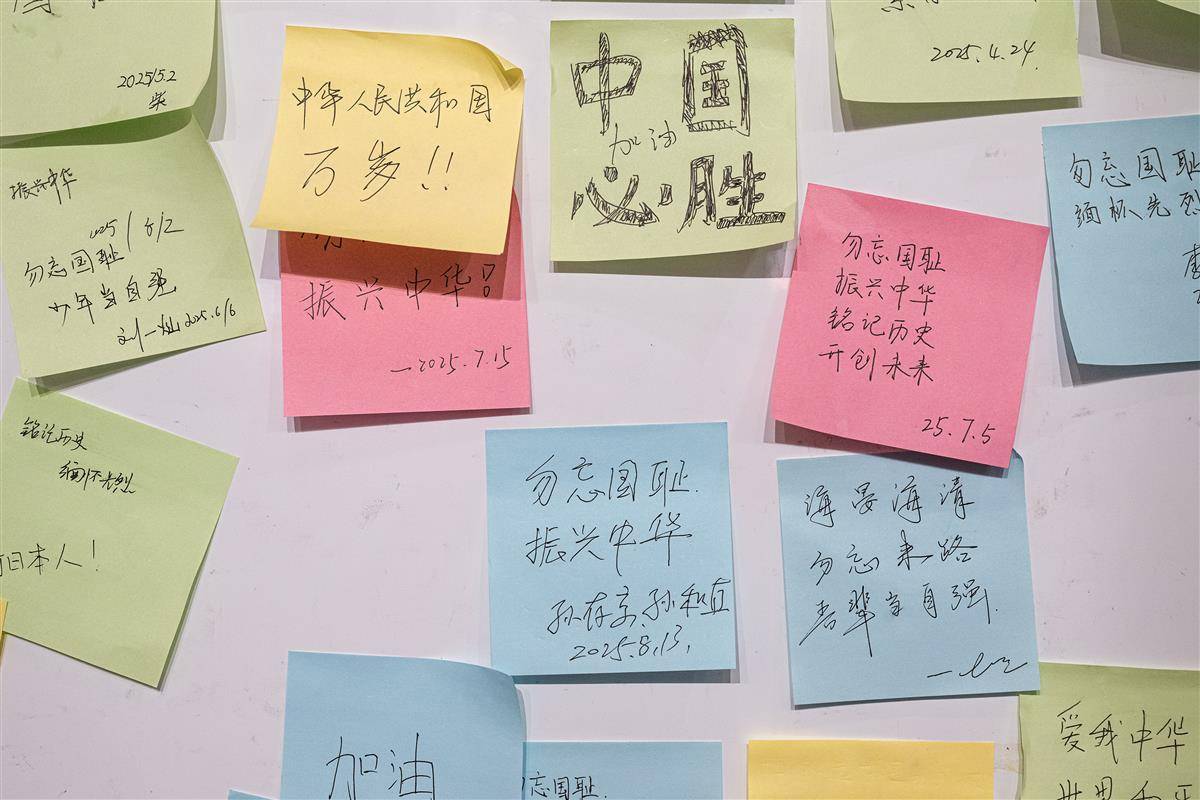 2025/5.2
柴
中华人民共和国
万岁!!
中国
加油
必胜
2025.4.24.
振兴中华
2025/6/2
勿忘国耻
少年当自强
2025.6/6
振兴中华!
—2025.7.15
勿忘国耻
振兴中华
铭记历史
开创未来
25.7.5
勿忘国耻
缅怀先烈
铭记历史
缅怀先烈
日本人!
勿忘国耻.
振兴中华
2025.8.13.
海晏海清
勿忘来路
吾辈当自强.
加油
忘国耻.
爱我中华
世界和平